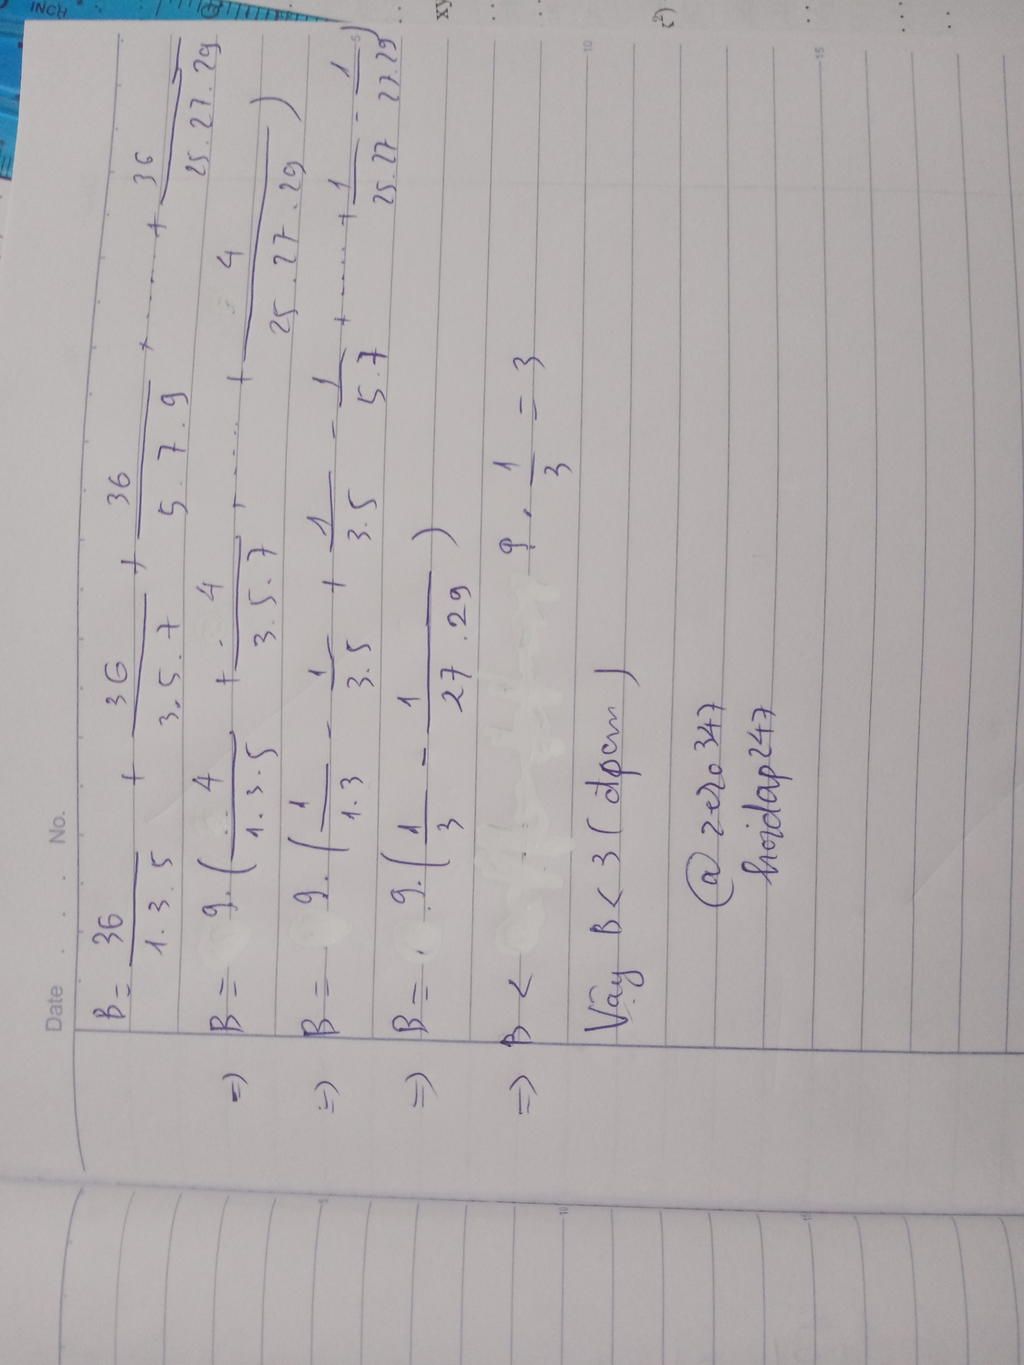 Date . . No.
B = 36/1.3.5 + 36/3.5.7 + 36/5.7.9 + ..... + 36/25.27.29
=) B = 9.(4/1.3.5 + 4/3.5.7 + ..... + 4/25.27.29)
=) B = 9.(1/1.3 - 1/3.5 + 1/3.5 - 1/5.7 + ..... + 1/25.27 - 1/27.29)
=) B = 9.(1/3 - 1/27.29)
=) B < 9.1/3 = 3
Vậy B < 3 (đpcm)
@zero347
hoidap247